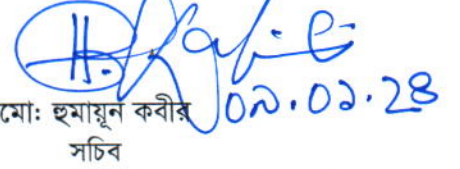 ০৯.০১.২৪
মো: হুমায়ূন কবীর
সচিব